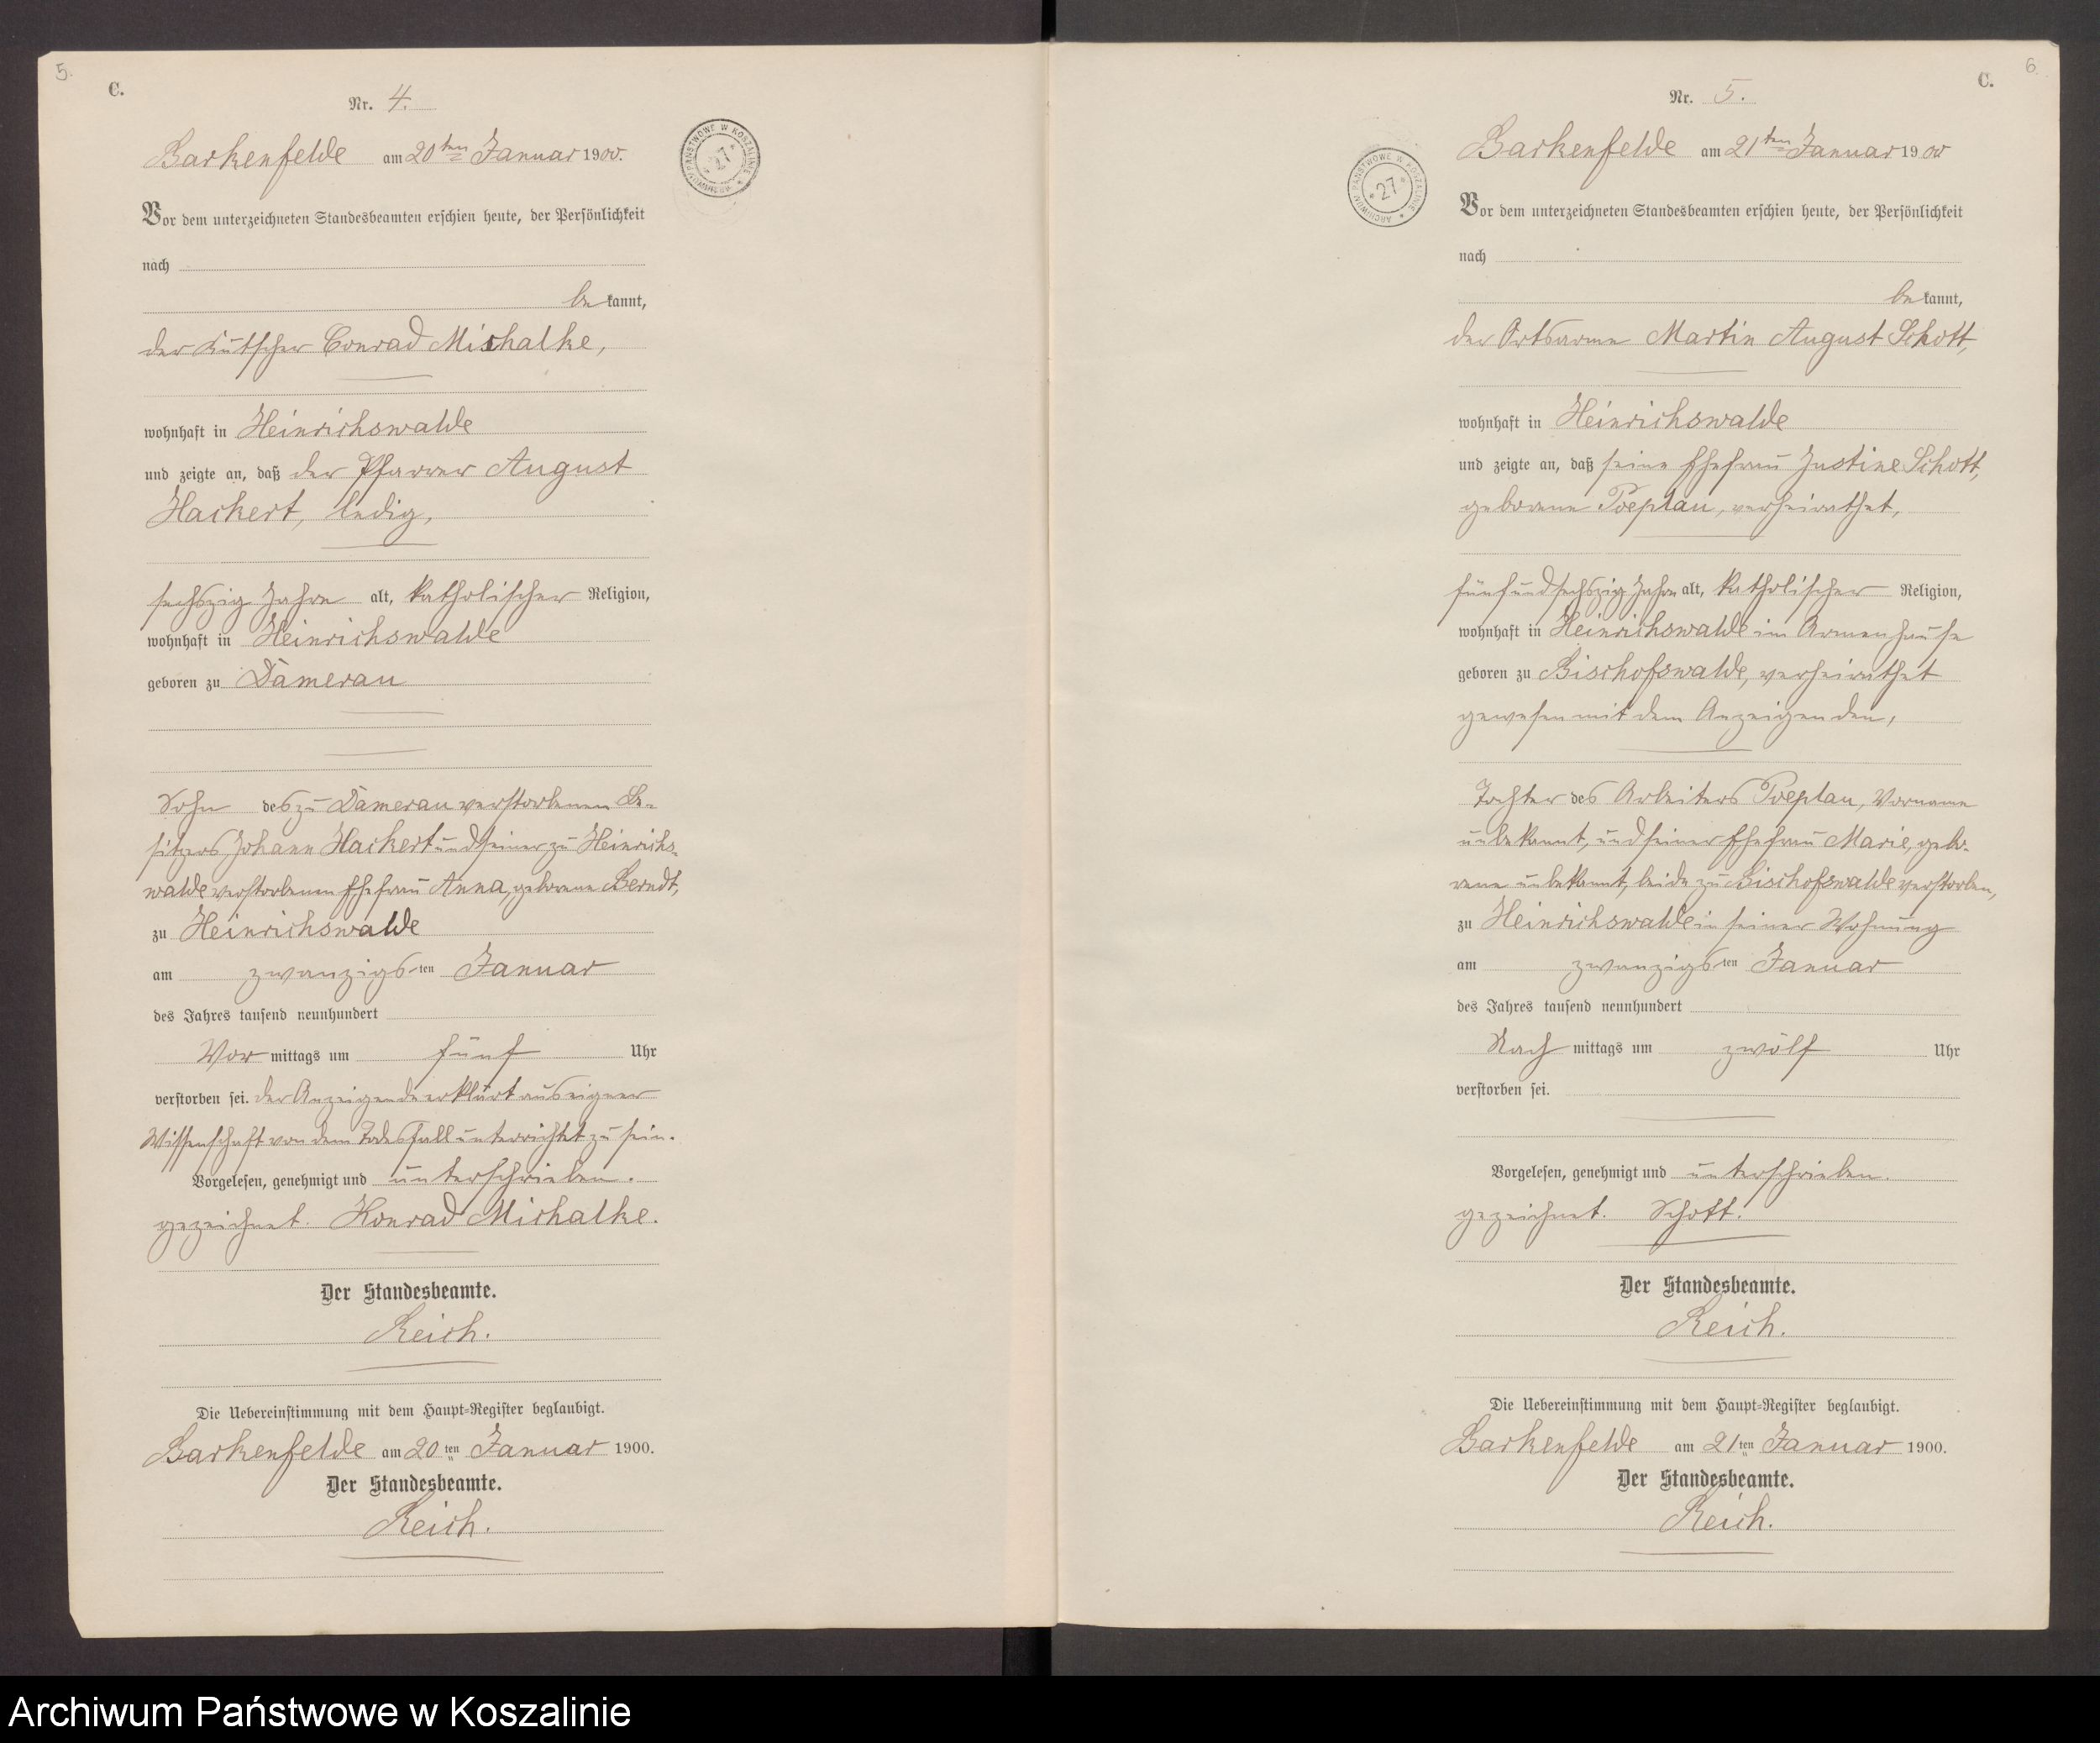 5.
C.
Nr. 4.
Barkenfelde am 20ten Januar 1900.
Vor dem unterzeichneten Standesbeamten erschien heute, der Persönlichkeit
nach
bekannt,
der Kutscher Conrad Mischalke,
wohnhaft in Heinrichswalde
und zeigte an, daß der Pfarrer August
Hackert, ledig,
sechszig Jahre alt, katholischer Religion,
wohnhaft in Heinrichswalde
geboren zu Damerau
Sohn des zu Damerau verstorbenen Be-
sitzers Johann Hackert und seiner zu Heinrichs-
walde verstorbenen Ehefrau Anna, geborene Berndt,
zu Heinrichswalde
am zwanzigsten Januar
des Jahres tausend neunhundert
Vormittags um fünf Uhr
verstorben sei. Der Anzeigende erklärt aus eigner
Wissenschaft von dem Todesfall unterrichtet zu sein.
Vorgelesen, genehmigt und unterschrieben.
gezeichnet. Konrad Michalke.
Der Standesbeamte.
Reich.
Die Uebereinstimmung mit dem Haupt-Register beglaubigt.
Barkenfelde am 20ten Januar 1900.
Der Standesbeamte.
Reich.
ARCHIWUM PAŃSTWOWE W KOSZALINIE * 27 *
6
C.
Nr. 5.
Barkenfelde am 21ten Januar 1900
Vor dem unterzeichneten Standesbeamten erschien heute, der Persönlichkeit
nach
bekannt,
der Ortsarme Martin August Schott,
wohnhaft in Heinrichswalde
und zeigte an, daß seine Ehefrau Justine Schott,
geborene Poeplau, verheirathet,
fünfundsechszig Jahre alt, katholischer Religion,
wohnhaft in Heinrichswalde im Armenhause
geboren zu Bischofswalde, verheirathet
gewesen mit dem Anzeigenden,
Tochter des Arbeiters Poeplau, Vorname
unbekannt, und seiner Ehefrau Marie, gebo-
rene unbekannt, beide zu Bischofswalde verstorben,
zu Heinrichswalde in seiner Wohnung
am zwanzigsten Januar
des Jahres tausend neunhundert
Nachmittags um zwölf Uhr
verstorben sei.
Vorgelesen, genehmigt und unterschrieben.
gezeichnet. Schott.
Der Standesbeamte.
Reich.
Die Uebereinstimmung mit dem Haupt-Register beglaubigt.
Barkenfelde am 21ten Januar 1900.
Der Standesbeamte.
Reich.
ARCHIWUM PAŃSTWOWE W KOSZALINIE * 27 *
Archiwum Państwowe w Koszalinie